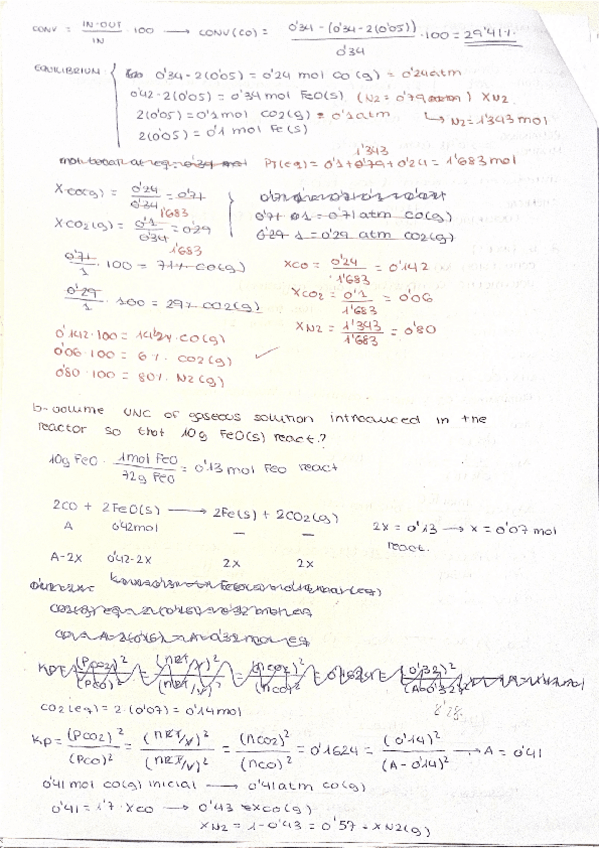 CONV = IN-OUT/IN · 100 → CONV(CO) = 0'34 - (0'34 - 2(0'05))/0'34 · 100 = 29'41%
EQUILIBRIUM { 0'34 - 2(0'05) = 0'24 mol CO(g) = 0'24 atm
0'42 - 2(0'05) = 0'34 mol FeO(s) (N2 = 0'79) XN2
2(0'05) = 0'1 mol CO2(g) = 0'1 atm ↳ N2 = 1'343 mol
2(0'05) = 0'1 mol Fe(s)
1'343
PT(eq) = 0'1 + 0'79 + 0'24 = 1'683 mol
XCO(g) = 0'24/0'34 = 0'71
1'683
0'71 · 1 = 0'71 atm CO(g)
XCO2(g) = 0'1/0'34 = 0'29
1'683
0'29 · 1 = 0'29 atm CO2(g)
0'71/1 · 100 = 71% CO(g)
XCO = 0'24/1'683 = 0'142
0'29/1 · 100 = 29% CO2(g)
XCO2 = 0'1/1'683 = 0'06
XN2 = 1'343/1'683 = 0'80
0'142 · 100 = 14'2% CO(g)
0'06 · 100 = 6% CO2(g) ✓
0'80 · 100 = 80% N2(g)
b- volume UNC of gaseous solution introduced in the
reactor so that 10g FeO(s) react?
10g FeO · 1mol FeO/72g FeO = 0'13 mol FeO react
2CO + 2FeO(s) → 2Fe(s) + 2CO2(g)
A 0'42mol — —
2x = 0'13 → x = 0'07 mol
react.
A-2x 0'42-2x 2x 2x
CO2(eq) = 2 · (0'07) = 0'14 mol
Kp = (PCO2)²/(PCO)² = (nRT/V)²/(nRT/V)² = (nCO2)²/(nCO)² = 0'1624 = (0'14)²/(A - 0'14)² → A = 0'41
0'41 mol CO(g) inicial → 0'41 atm CO(g)
0'41 = 1'7 · XCO → 0'43 = XCO(g)
XN2 = 1 - 0'43 = 0'57 = XN2(g)